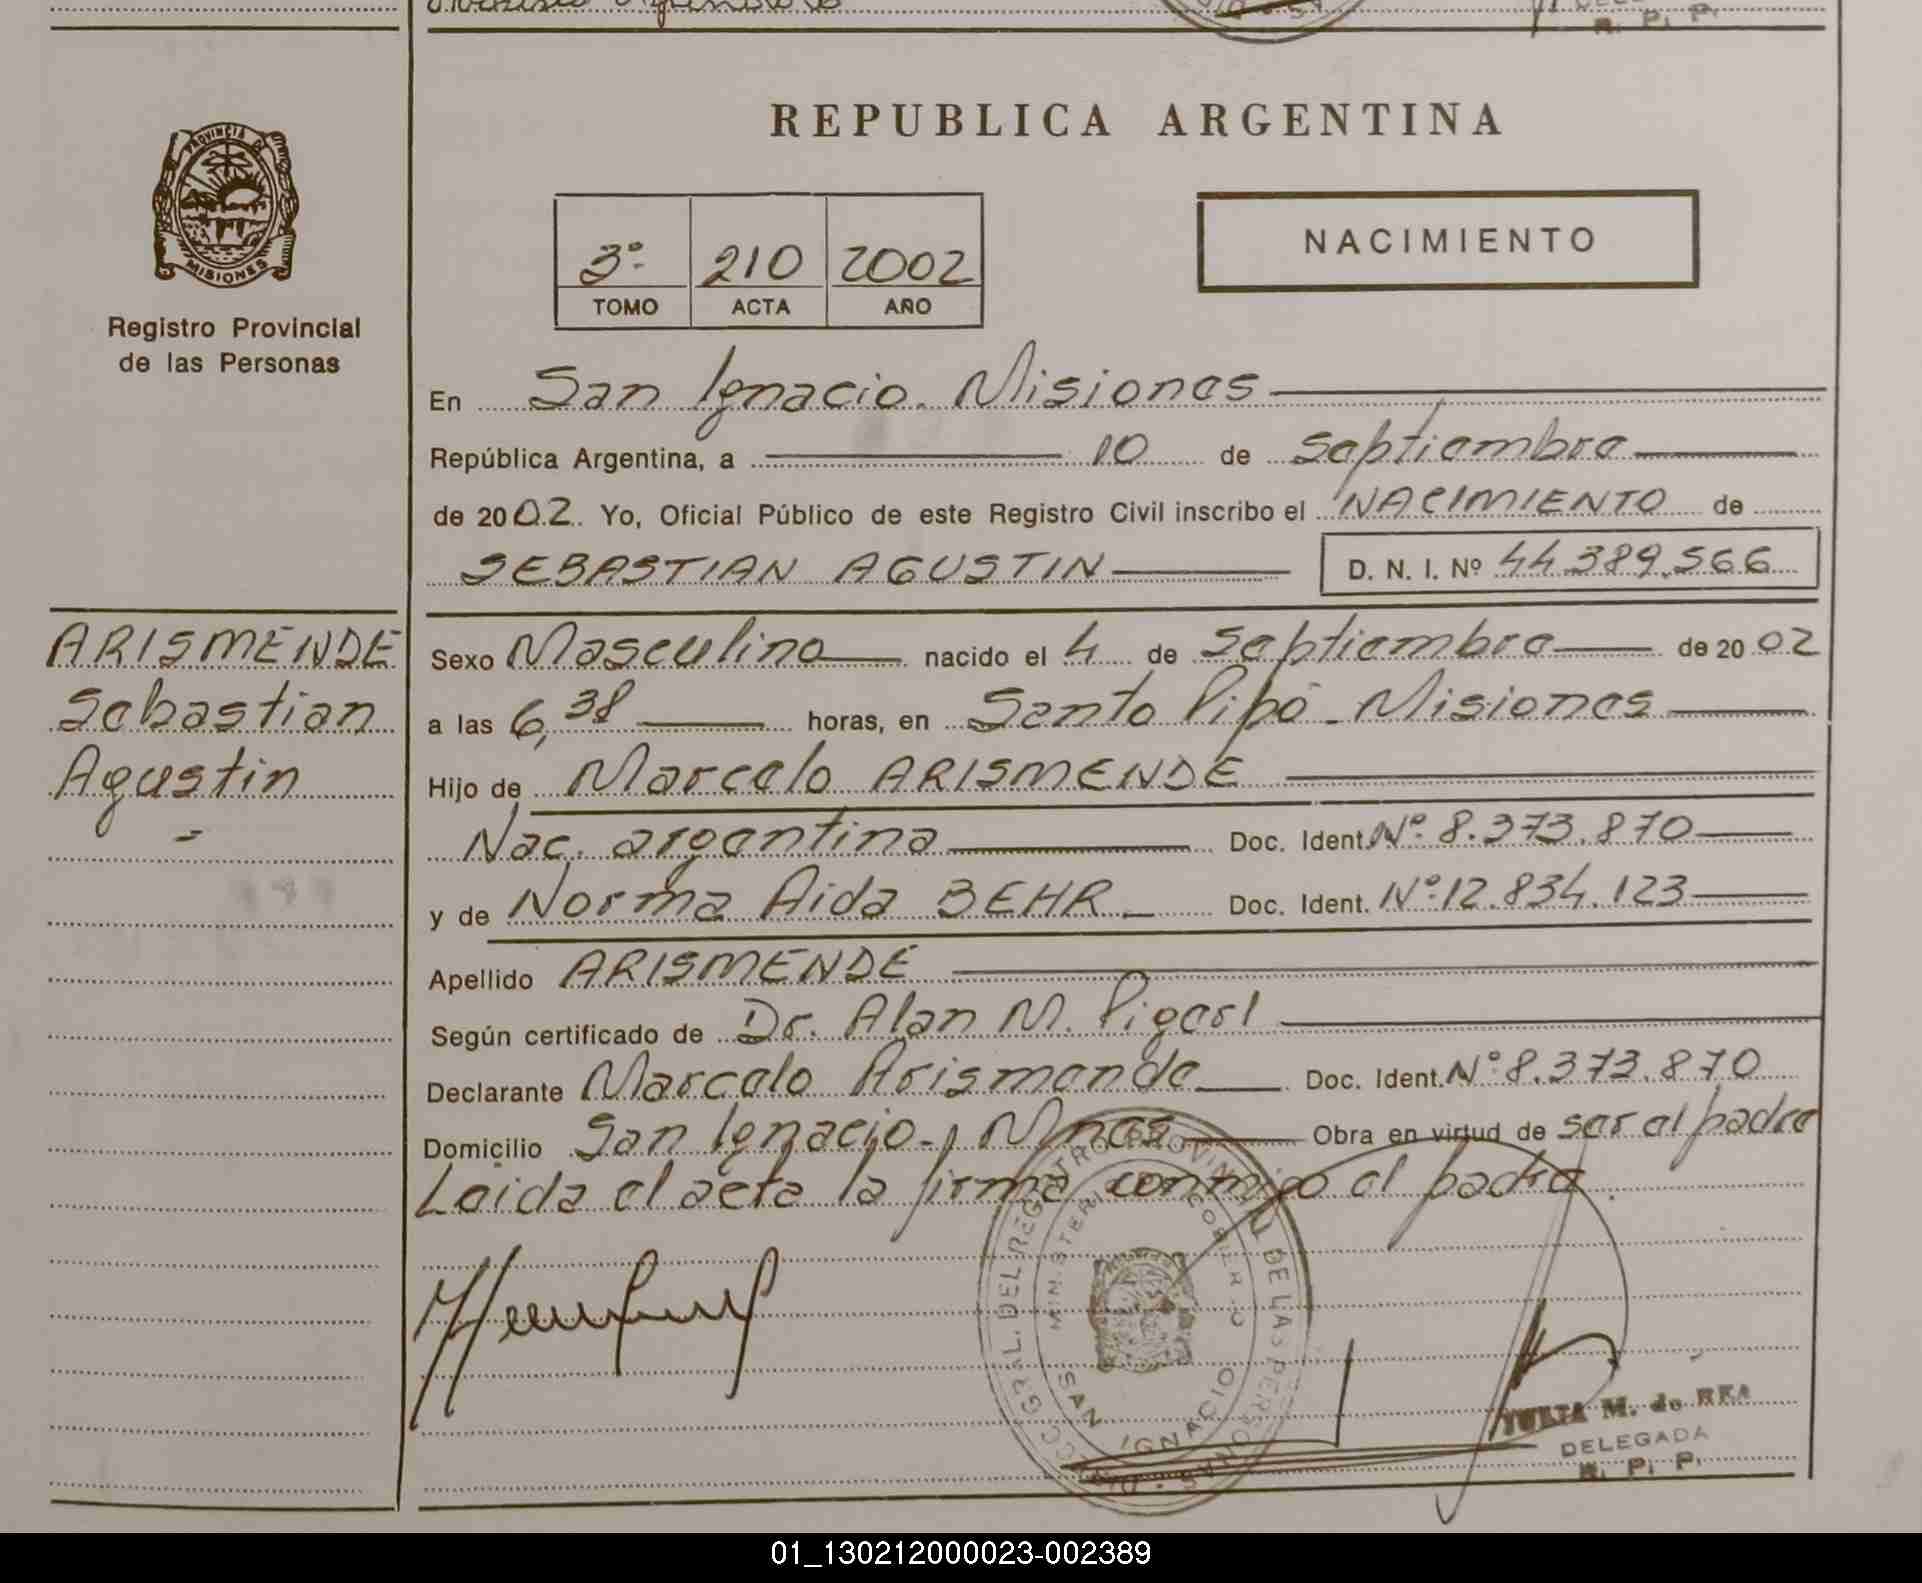 R. P. P.
PROVINCIA DE
MISIONES
Registro Provincial
de las Personas
REPUBLICA ARGENTINA
3º 210 2002
TOMO ACTA AÑO
NACIMIENTO
En San Ignacio. Misiones
República Argentina, a 10 de septiembre
de 2002. Yo, Oficial Público de este Registro Civil inscribo el NACIMIENTO de
SEBASTIAN AGUSTIN D. N. I. Nº 44.389.566
ARISMENDE
Sebastian
Agustin
Sexo Masculino nacido el 4 de septiembre de 2002
a las 6,38 horas, en Santo Pipó - Misiones
Hijo de Marcelo ARISMENDE
Nac. argentina Doc. Ident. Nº 8.373.870
y de Norma Aida BEHR Doc. Ident. Nº 12.834.123
Apellido ARISMENDE
Según certificado de Dr. Alan M. Pigerl
Declarante Marcelo Arismende Doc. Ident. Nº 8.373.870
Domicilio San Ignacio, Mnes Obra en virtud de ser el padre
Leida el acta la firma conmigo el padre.
GRAL. DEL REGISTRO PROVINCIAL DE LAS PERSONAS
MINISTERIO GOBIERNO
SAN IGNACIO
M. de REA
DELEGADA
R. P. P.
01_130212000023-002389